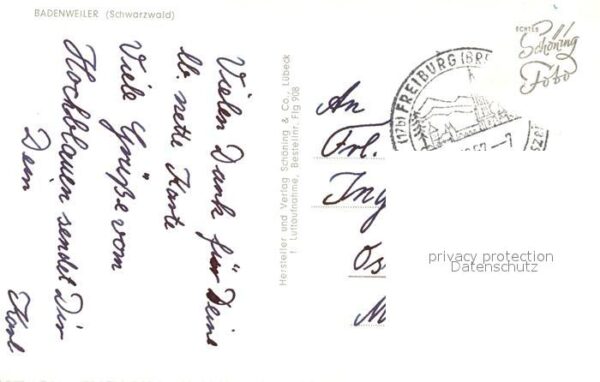 BADENWEILER (Schwarzwald)
Vielen Dank für Deine
lb. nette Karte
Viele Grüße vom
Hochblauen sendet Dir
Dein
Karl
Hersteller und Verlag Schöning & Co., Lübeck
Luftaufnahme, Bestellnr. Flg 908
ECHTES
Schöning
Foto
(17b) FREIBURG (BR
An
Frl.
Ing
Ös
M
privacy protection
Datenschutz